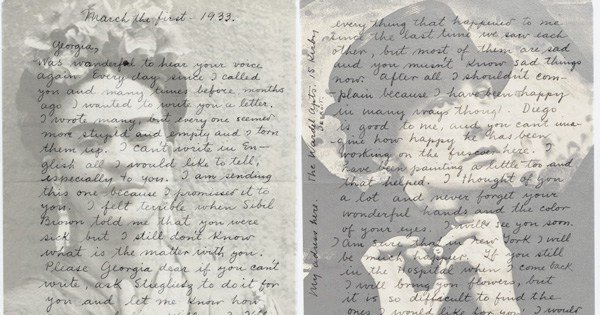 March the first - 1933.
Georgia,
Was wonderful to hear your voice
again. Every day since I called
you and many times before months
ago I wanted to write you a letter.
I wrote many, but every one seemed
more stupid and empty and I torn
them up. I can't write in En-
glish all I would like to tell,
especially to you. I am sending
this one because I promised it to
you. I felt terrible when Sibil
Brown told me that you were
sick but I still don't know
what is the matter with you.
Please Georgia dear if you can't
write, ask Stieglitz to do it for
you and let me know how
every thing that happened to me
since the last time we saw each
other, but most of them are sad
and you mustn't know sad things
now. After all I shouldn't com-
plain because I have been happy
in many ways though. Diego
is good to me, and you can't ima-
gine how happy he has been
working on the frescoes here. I
have been painting a little too and
that helped. I thought of you
a lot and never forget your
wonderful hands and the color
of your eyes. I will see you soon.
I am sure that in New York I will
be much happier. If you still
in the Hospital when I come back
I will bring you flowers, but
it is so difficult to find the
ones I would like for you. I would
My adress here The Wardell Apts. 15 Kirby